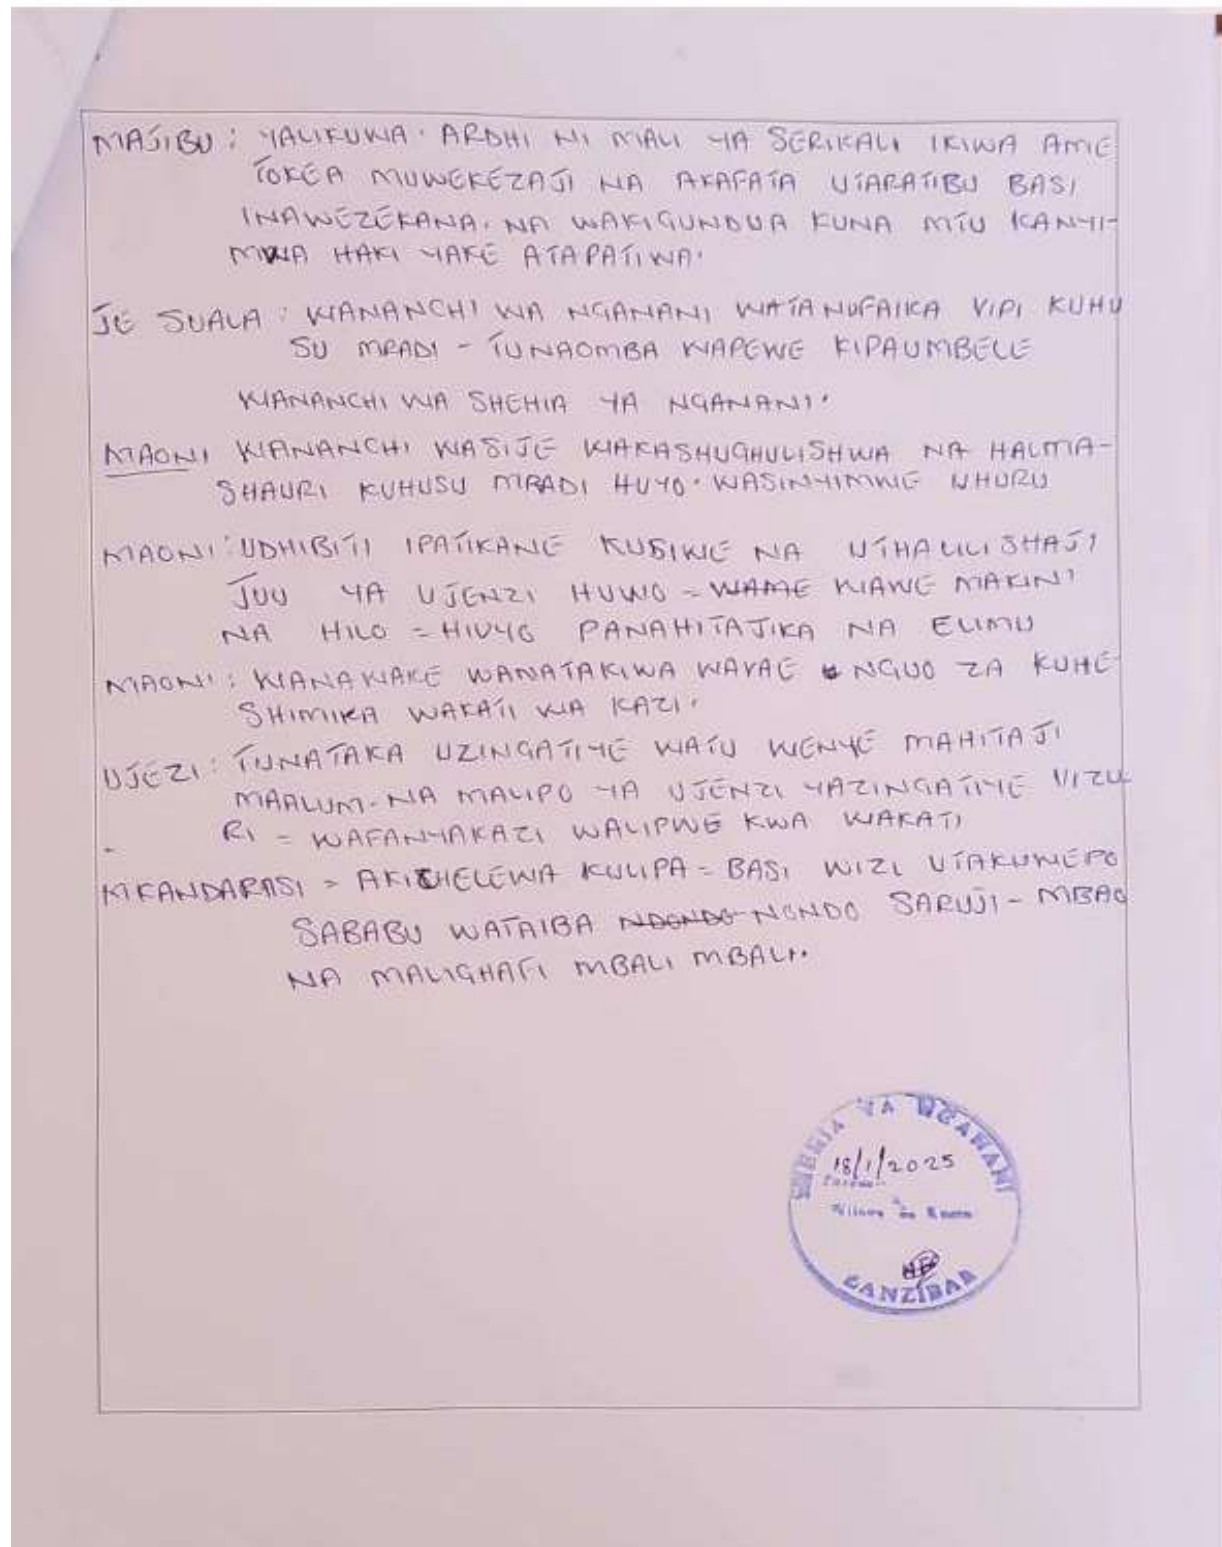 MAJIBU : YALIKUWA. ARDHI NI MALI YA SERIKALI IKIWA AME
TOKEA MUWEKEZAJI NA AKAFATA UTARATIBU BASI
INAWEZEKANA. NA WAKIGUNDUA KUNA MTU KANYI-
MWA HAKI YAKE ATAPATIWA.
JE SUALA : WANANCHI WA NGANANI WATANUFAIKA VIPI KUHU
SU MRADI - TUNAOMBA WAPEWE KIPAUMBELE
WANANCHI WA SHEHIA YA NGANANI.
MAONI WANANCHI WASIJE WAKASHUGHULISHWA NA HALMA-
SHAURI KUHUSU MRADI HUYO. WASINYIMWE UHURU
MAONI : UDHIBITI IPATIKANE KUSIWE NA UTHALILISHAJI
JUU YA UJENZI HUWO = WAME WAWE MAKINI
NA HILO = HIVYO PANAHITAJIKA NA ELIMU
MAONI : WANAWAKE WANATAKIWA WAVAE NGUO ZA KUHE-
SHIMIKA WAKATI WA KAZI.
UJEZI : TUNATAKA UZINGATIYE WATU WENYE MAHITAJI
MAALUM - NA MALIPO YA UJENZI YAZINGATIYE VIZU-
RI = WAFANYAKAZI WALIPWE KWA WAKATI
MKANDARASI = AKICHELEWA KULIPA = BASI WIZI UTAKUWEPO
SABABU WATAIBA NDONDO NONDO SARUJI - MBAO
NA MALIGHAFI MBALI MBALI.
SHEHIA YA NGANANI
18/1/2025
ZANZIBAR